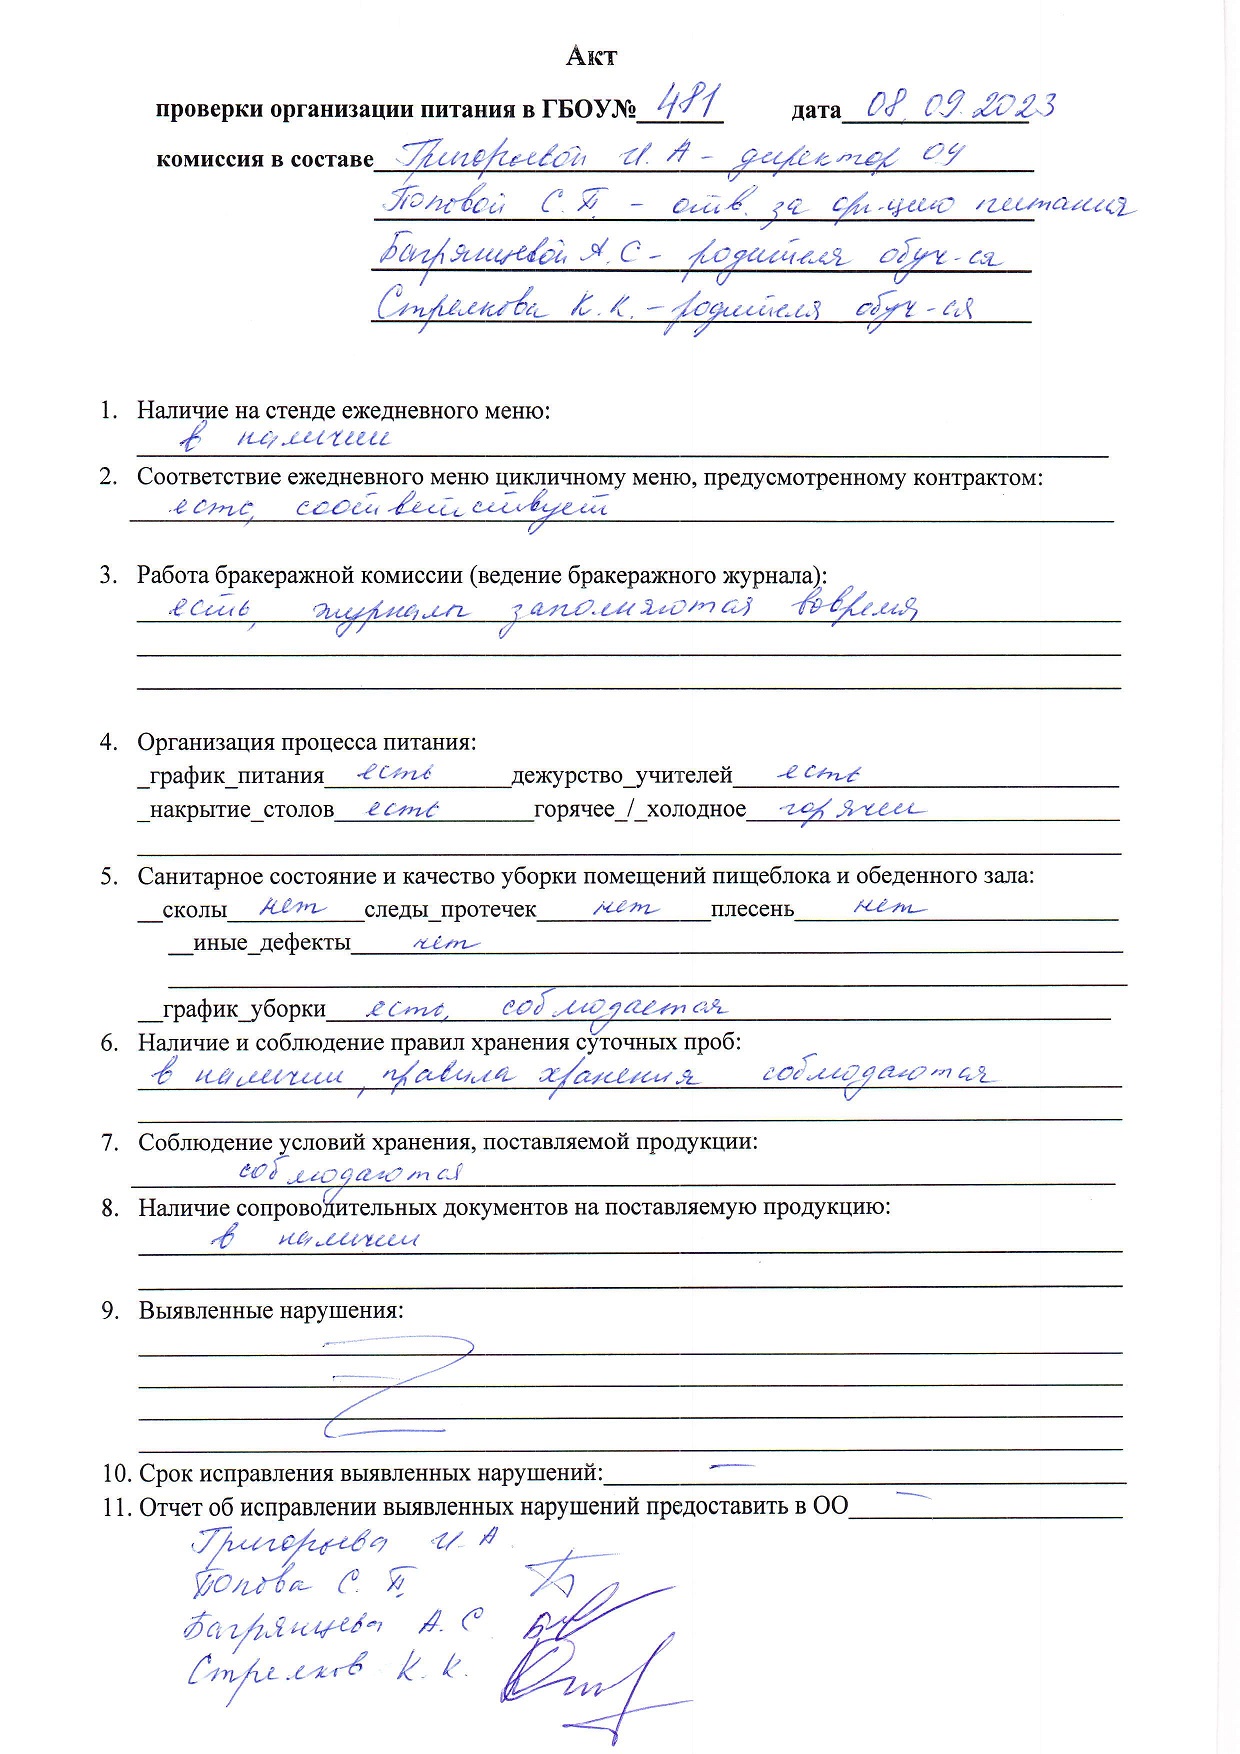 Акт
проверки организации питания в ГБОУ№ 481 дата 08.09.2023
комиссия в составе Григорьевой И. А - директор ОУ
Поповой С. П. - отв. за орг-цию питания
Багрянцевой А. С - родителя обуч-ся
Стрелкова К. К. - родителя обуч-ся
1. Наличие на стенде ежедневного меню:
в наличии
2. Соответствие ежедневного меню цикличному меню, предусмотренному контрактом:
есть, соответствует
3. Работа бракеражной комиссии (ведение бракеражного журнала):
есть, журналы заполняются вовремя
4. Организация процесса питания:
_график_питания есть дежурство_учителей есть
_накрытие_столов есть горячее_/_холодное горячее
5. Санитарное состояние и качество уборки помещений пищеблока и обеденного зала:
__сколы нет следы_протечек нет плесень нет
__иные_дефекты нет
__график_уборки есть, соблюдается
6. Наличие и соблюдение правил хранения суточных проб:
в наличии, правила хранения соблюдаются
7. Соблюдение условий хранения, поставляемой продукции:
соблюдаются
8. Наличие сопроводительных документов на поставляемую продукцию:
в наличии
9. Выявленные нарушения:
10. Срок исправления выявленных нарушений: —
11. Отчет об исправлении выявленных нарушений предоставить в ОО —
Григорьева И. А.
Попова С. П.
Багрянцева А. С
Стрелков К. К.